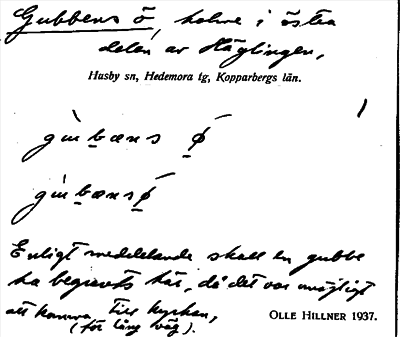 Gubbens ö, holme i östra
delen av Häglingen,
Husby sn, Hedemora tg, Kopparbergs län.
gùbæns ǿ
gùbænsǿ
Enligt meddelande skall en gubbe
ha begravts här, då det var omöjligt
att komma till kyrkan,
(för lång väg).
OLLE HILLNER 1937.